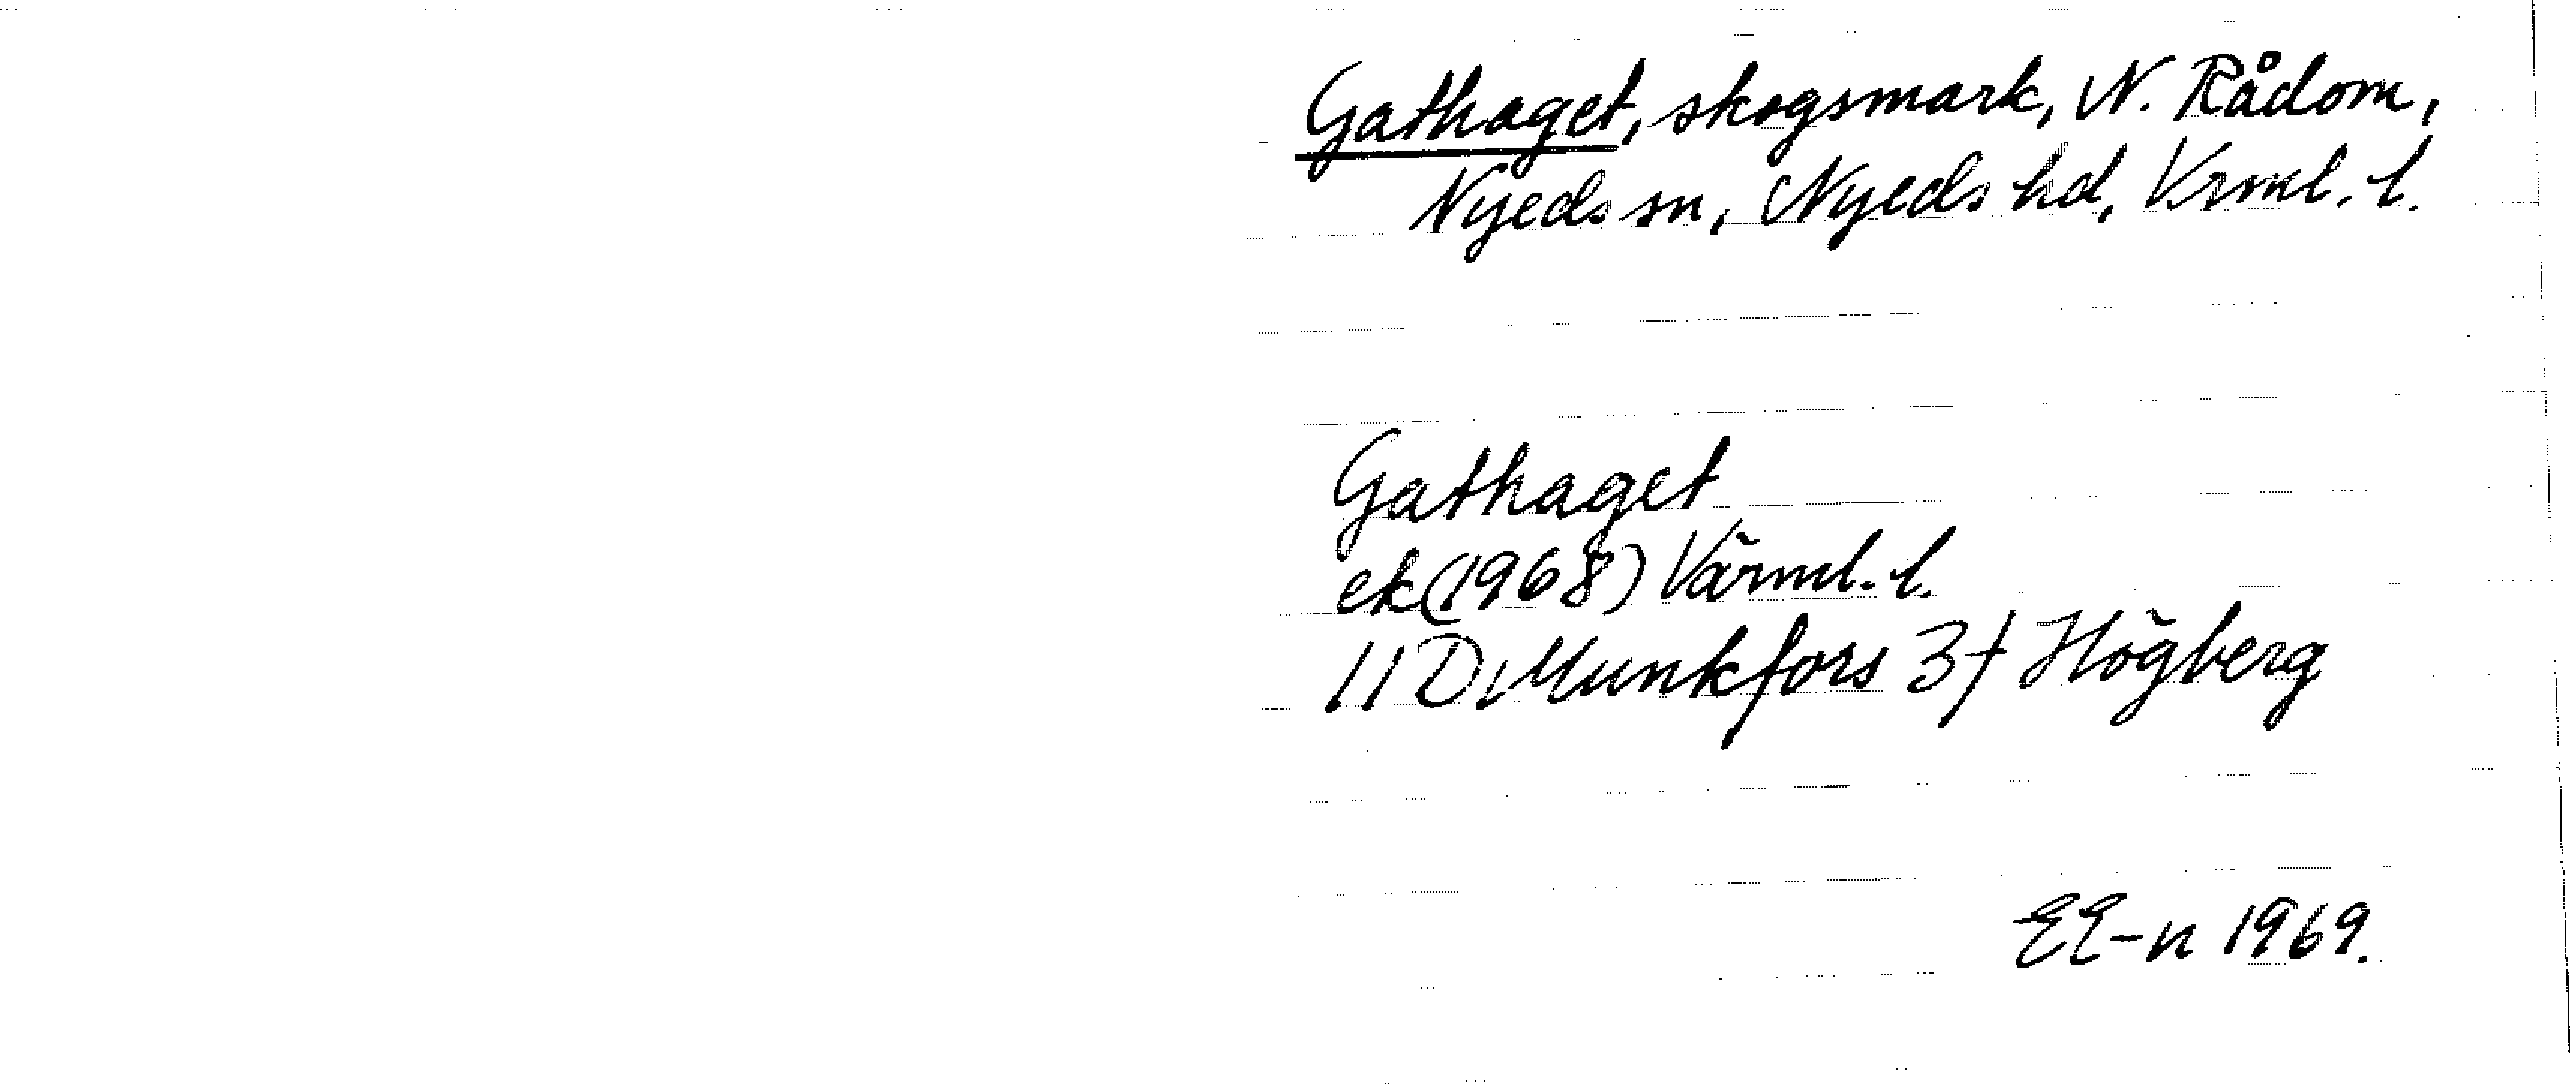 Gathaget, skogsmark, N. Rådom,
Nyeds sn, Nyeds hd, Vrml. l.
Gathaget
ek (1968) Värml. l.
11D Munkfors 3f Högberg
EE-n 1969.